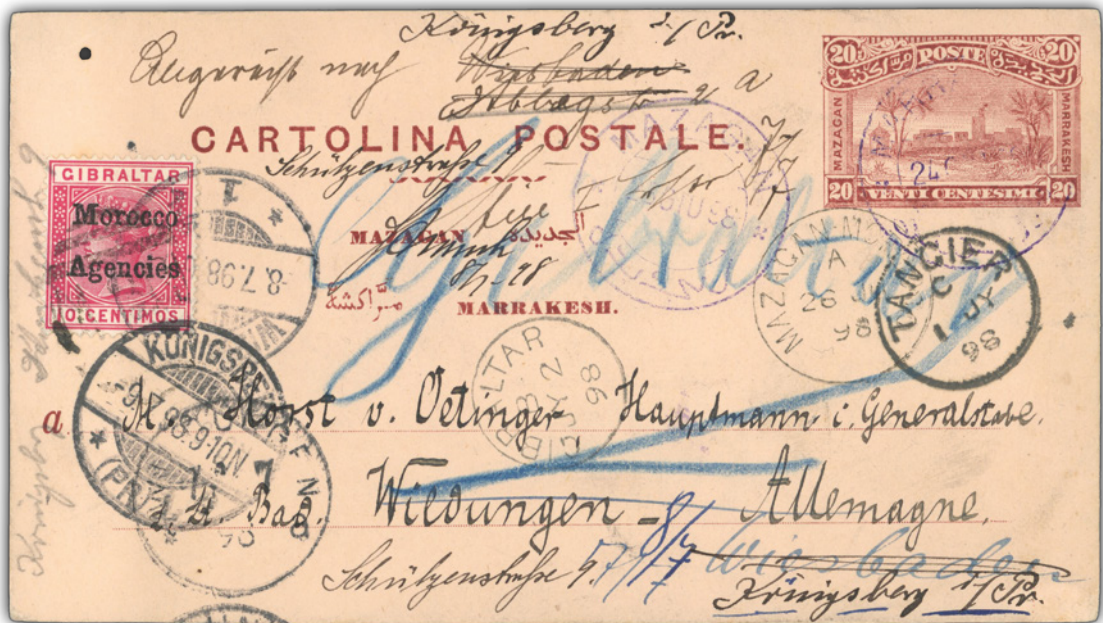 Königsberg i/Pr.
nach Wiesbaden
a
CARTOLINA POSTALE.
Schützenstraße
20 POSTE 20
MAZAGAN
MARRAKESH
20 VENTI CENTESIMI 20
GIBRALTAR
Morocco
Agencies
10 CENTIMOS
1
8.7.98
MAZAGAN الجديدة
مراكشة MARRAKESH.
8/7 98
Gibraltar
MAZAGAN
A
26
98
TANGIER
C
1 JY
98
GIBRALTAR
B
JY 2
98
KÖNIGSBERG
9.7.98.9-10N
(PR.)
a M. Horst v. Oetinger Hauptmann i. Generalstabe.
Bad. Wildungen - Allemagne.
8/7 Wiesbaden
Schützenstraße 9. 7/7
Königsberg i/Pr.
Königsberg